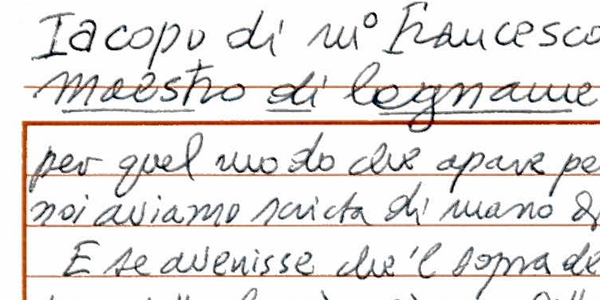 Iacopo di m° Francesco
maestro di legname
per quel modo che apare pe
noi aviamo scricta di mano
E se avenisse che 'l sopra de